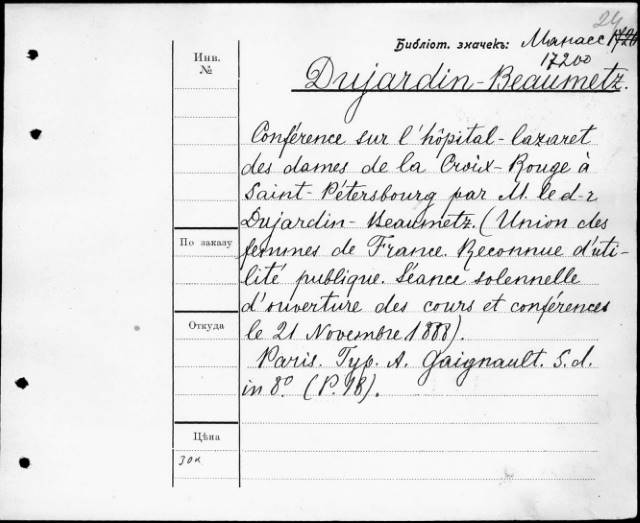 24
Библіот. значекъ: Манасс
17200
Инв.
№
Dujardin-Beaumetz.
Conférence sur l'hôpital-lazaret
des dames de la Croix-Rouge à
Saint-Pétersbourg par M. le d-r
Dujardin-Beaumetz. (Union des
По заказу
femmes de France. Reconnue d'uti-
lité publique. Séance solennelle
d'ouverture des cours et conférences
Откуда
le 21 Novembre 1888).
Paris. Typ. A. Gaignault. S.d.
in 8º. (P. 18).
Цѣна
30к